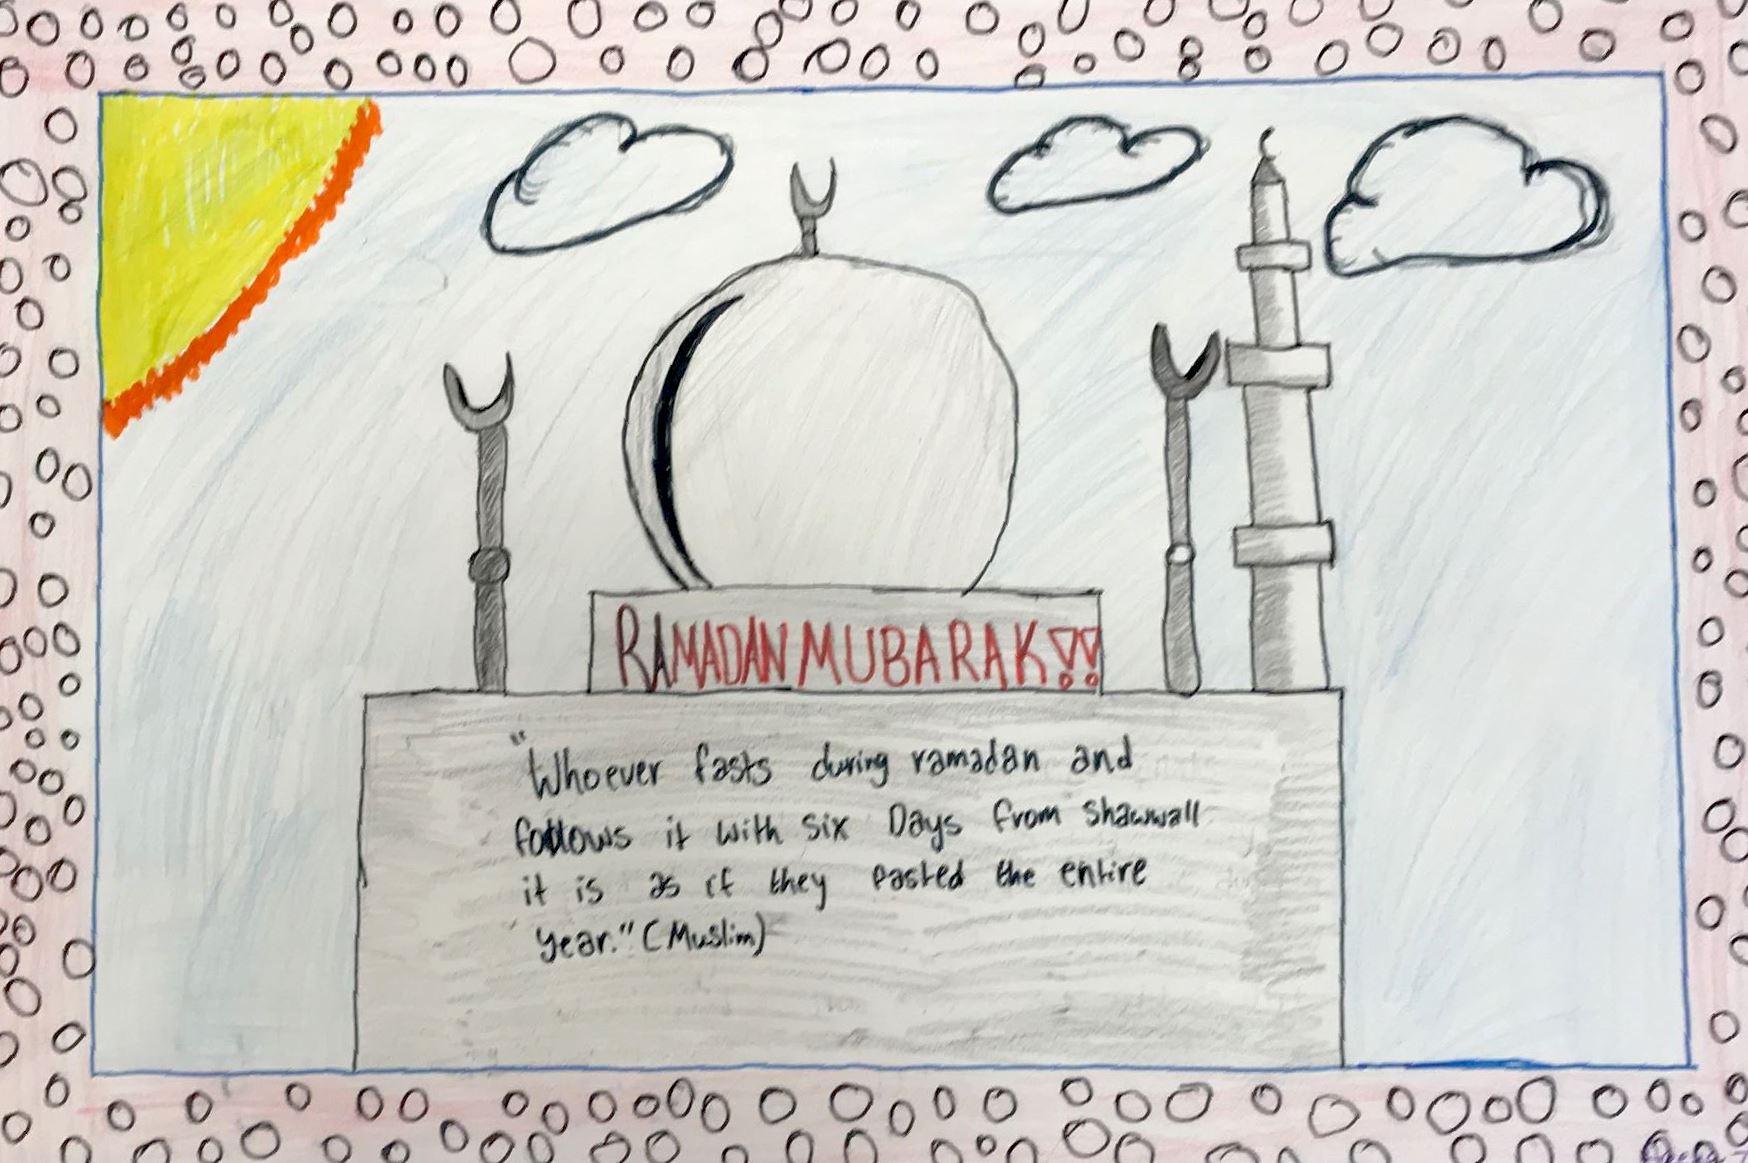 RAMADAN MUBARAK!!
"Whoever fasts during ramadan and
follows it with six Days from shawwall
it is as if they fasted the entire
year." (Muslim)